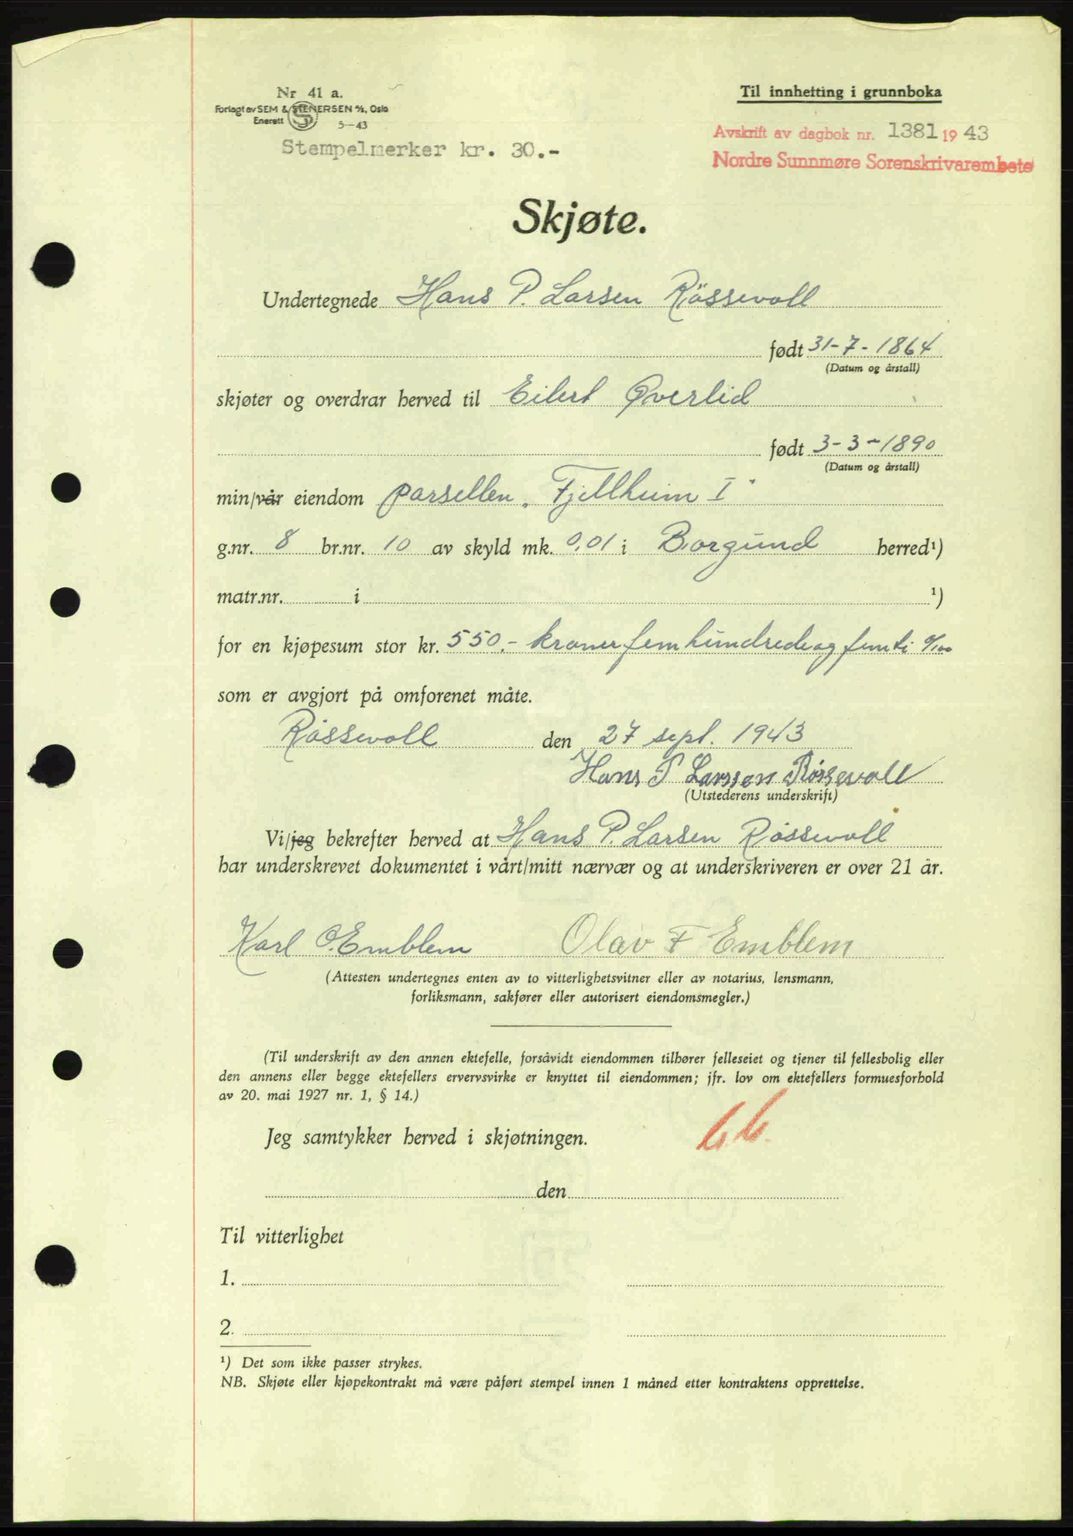 Nr 41 a.
Forlagt av SEM & STENERSEN A/S, Oslo
Enerett 5-43
Stempelmerker kr. 30.-
Til innhefting i grunnboka
Avskrift av dagbok nr. 1381 1943
Nordre Sunnmøre Sorenskrivarembete
Skjøte.
Undertegnede Hans P. Larsen Røssevoll
født 31-7-1864
(Datum og årstall)
skjøter og overdrar herved til Eilert Øverlid
født 3-3-1890
(Datum og årstall)
min/vår eiendom parsellen „Fjellheim I"
g.nr. 8 br.nr. 10 av skyld mk. 0,01 i Borgund herred¹)
matr.nr. i ¹)
for en kjøpesum stor kr. 550,- kroner femhundredeogfemti 0/100
som er avgjort på omforenet måte.
Røssevoll den 27 sept. 1943
Hans P Larsen Røssevoll
(Utstederens underskrift)
Vi/jeg bekrefter herved at Hans P. Larsen Røssevoll
har underskrevet dokumentet i vårt/mitt nærvær og at underskriveren er over 21 år.
Karl O. Emblem Olav F Emblem
(Attesten undertegnes enten av to vitterlighetsvitner eller av notarius, lensmann,
forliksmann, sakfører eller autorisert eiendomsmegler.)
(Til underskrift av den annen ektefelle, forsåvidt eiendommen tilhører felleseiet og tjener til fellesbolig eller
den annens eller begge ektefellers ervervsvirke er knyttet til eiendommen; jfr. lov om ektefellers formuesforhold
av 20. mai 1927 nr. 1, § 14.)
Jeg samtykker herved i skjøtningen.
den
Til vitterlighet
1.
2.
¹) Det som ikke passer strykes.
NB. Skjøte eller kjøpekontrakt må være påført stempel innen 1 måned etter kontraktens opprettelse.